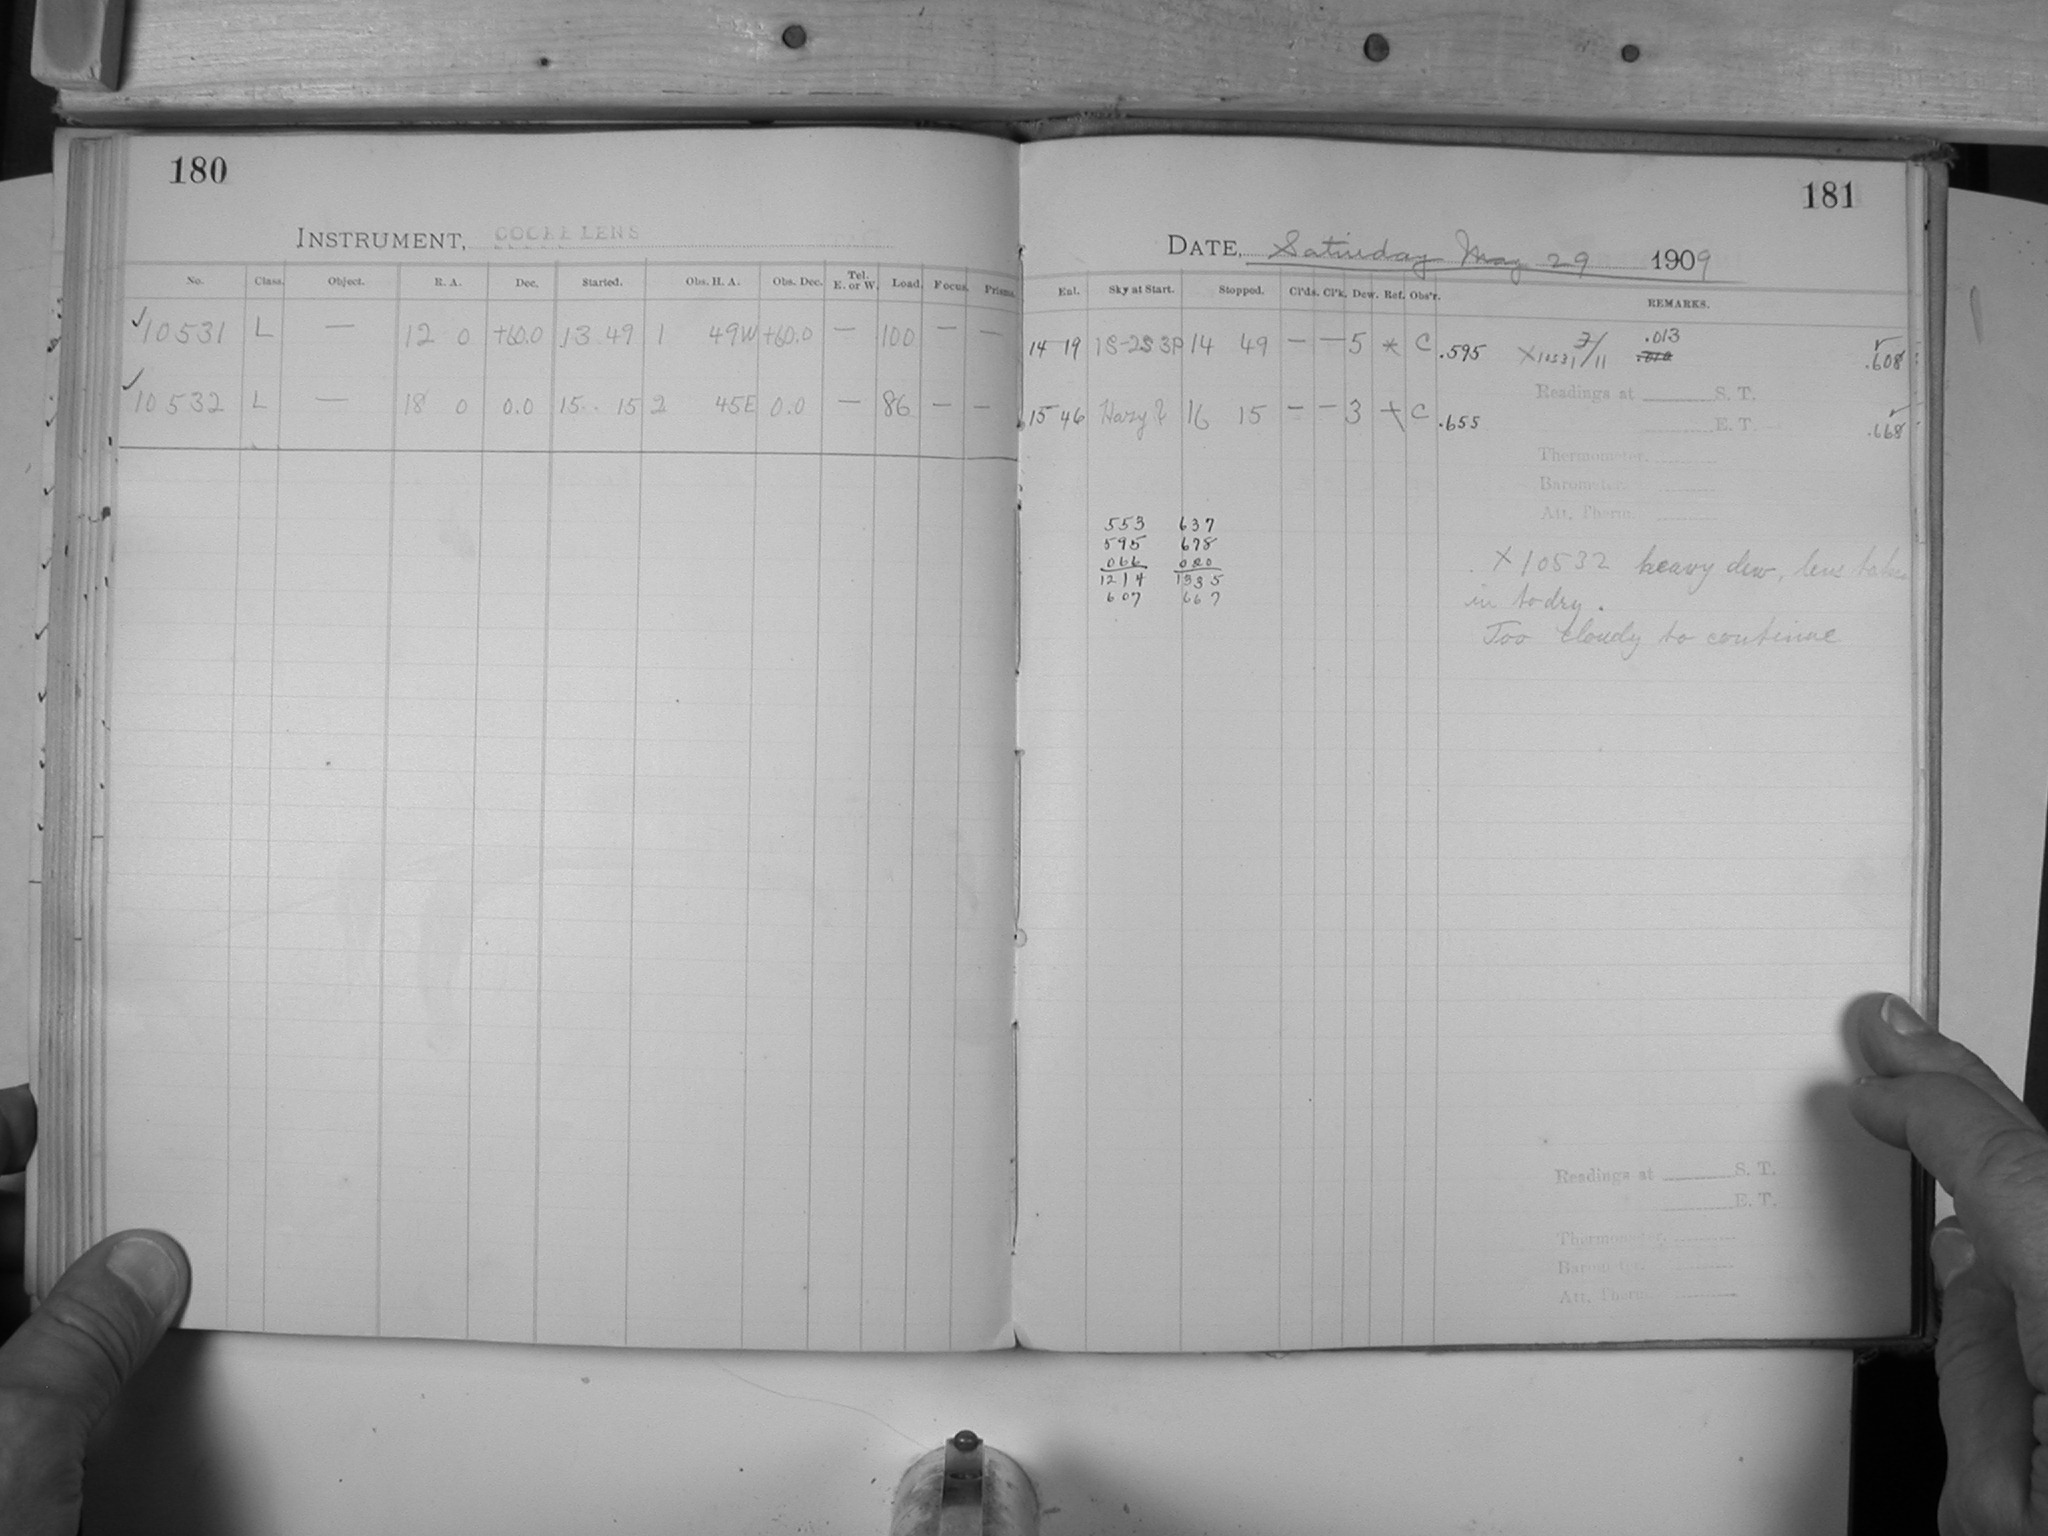 180
INSTRUMENT, COOKE LENS
No. Class. Object. R. A. Dec. Started. Obs. H. A. Obs. Dec. Tel. E. or W. Load. Focus. Prisms.
✓10531 L — 12 0 +60.0 13 49 1 49W +60.0 — 100 — —
✓10532 L — 18 0 0.0 15 15 2 45E 0.0 — 86 — —
181
DATE, Saturday May 29 1909
Ent. Sky at Start. Stopped. Cl'ds. Cl'k. Dew. Ref. Obs'r. REMARKS.
14 19 1S-2S 3P 14 49 — — 5 * C .595 X10531 7/11 .013 .608
15 46 Hazy ? 16 15 — — 3 + C .655 .668
Readings at S. T.
E. T.
Thermometer,
Barometer,
Att. Therm.
553 637
595 678
066 020
1214 1335
607 667
X10532 heavy dew, lens taken
in to dry.
Too cloudy to continue
Readings at S. T.
E. T.
Thermometer,
Barometer,
Att. Therm.